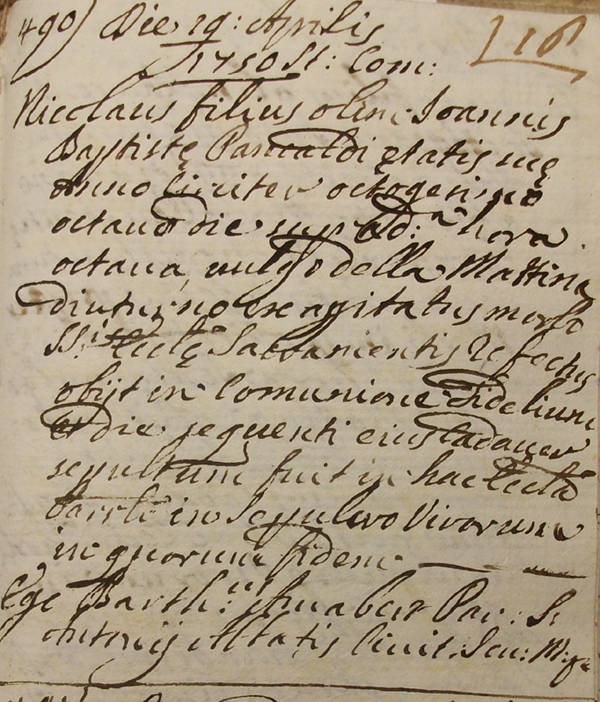 490) Die 19: Aprilis 116
1750 St: Com:
Nicolaus filius olim Joannis
Baptistę Pancaldi ętatis suę
Anno Circiter octogesimo
octavo die supr.ad:a hora
octava, vulgo della Mattina
diuturno exagitatus morbo
SS.is Eccl.ę Sacramentis refectus
obijt in Comunione Fidelium
et die sequenti eius Cadaver
sepultum fuit in hac Eccl.a
Parr.li in Sepulcro Virorum
in quorum fidem
Ego Barth.us Par: S.
Antonij Abbatis Civit.